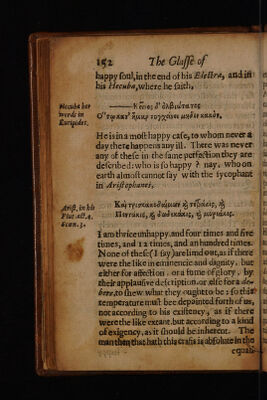 152 The Glasse of
happy soul, in the end of his Electra, and in
his Hecuba, where he saith,
Hecuba her
words in
Euripides.
Ὅτῳ κατ' ἦμαρ τυγχάνει μηδὲν κακόν.
He is in a most happy case, to whom never a
day there happens any ill. There was never
any of these in the same perfection they are
described: who is so happy? nay, who on
earth almost cannot say with the sycophant
in Aristophanes,
Arist. in his
Plut. Act. 4.
Scen. 3.
I am thrice unhappy, and four times and five
times, and 12 times, and an hundred times.
None of these (I say) are limd out, as if there
were the like in eminencie and dignity, but
either for affection, or a fume of glory, by
their applausive description, or else for a
to shew what they ought to be: so this
temperature must be depainted forth of us,
not according to his existency, as if there
were the like extant, but according to a kind
of exigency, as it should be inherent. The
man then that hath this crasis is absolute in the
equall-